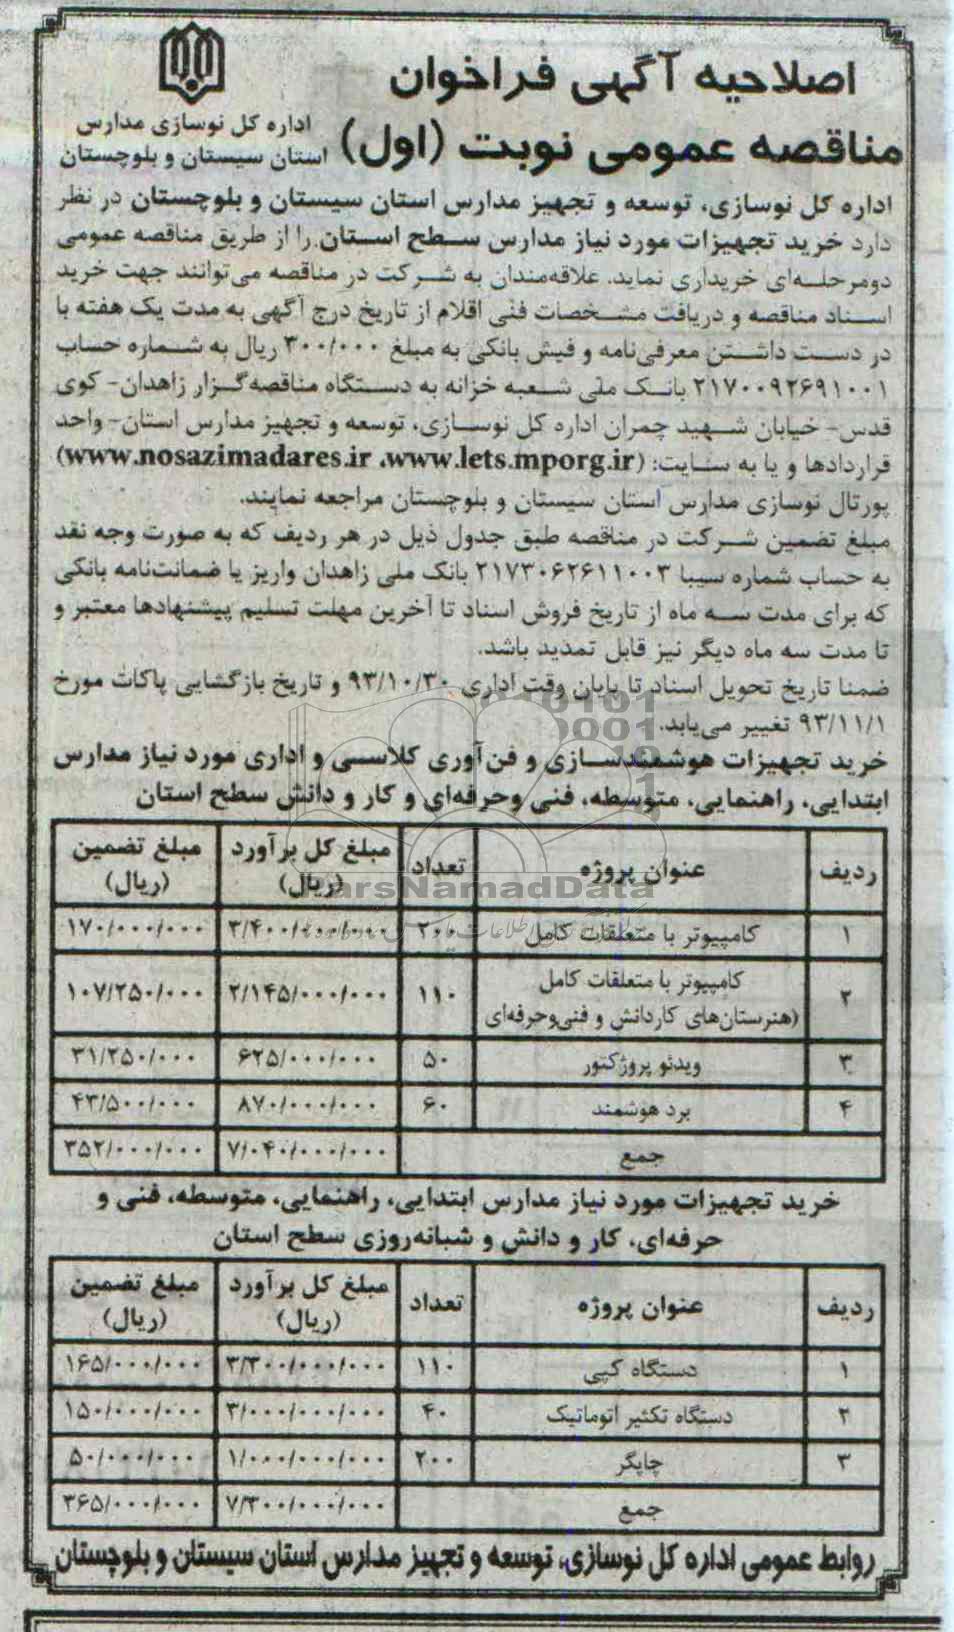 اصلاحیه آگهی فراخوان
مناقصه عمومی نوبت (اول)
اداره کل نوسازی مدارس
استان سیستان و بلوچستان
اداره کل نوسازی، توسعه و تجهیز مدارس استان سیستان و بلوچستان در نظر
دارد خرید تجهیزات مورد نیاز مدارس سطح استان را از طریق مناقصه عمومی
دومرحله‌ای خریداری نماید. علاقه‌مندان به شرکت در مناقصه می‌توانند جهت خرید
اسناد مناقصه و دریافت مشخصات فنی اقلام از تاریخ درج آگهی به مدت یک هفته با
در دست داشتن معرفی‌نامه و فیش بانکی به مبلغ ۳۰۰/۰۰۰ ریال به شماره حساب
۲۱۷۰۰۹۲۶۹۱۰۰۱ بانک ملی شعبه خزانه به دستگاه مناقصه‌گزار زاهدان- کوی
قدس- خیابان شهید چمران اداره کل نوسازی، توسعه و تجهیز مدارس استان- واحد
قراردادها و یا به سایت: (www.nosazimadares.ir ،www.lets.mporg.ir)
پورتال نوسازی مدارس استان سیستان و بلوچستان مراجعه نمایند.
مبلغ تضمین شرکت در مناقصه طبق جدول ذیل در هر ردیف که به صورت وجه نقد
به حساب شماره سیبا ۲۱۷۳۰۶۲۶۱۱۰۰۳ بانک ملی زاهدان واریز یا ضمانت‌نامه بانکی
که برای مدت سه ماه از تاریخ فروش اسناد تا آخرین مهلت تسلیم پیشنهادها معتبر و
تا مدت سه ماه دیگر نیز قابل تمدید باشد.
ضمنا تاریخ تحویل اسناد تا پایان وقت اداری ۹۳/۱۰/۳۰ و تاریخ بازگشایی پاکات مورخ
۹۳/۱۱/۱ تغییر می‌یابد.
خرید تجهیزات هوشمندسازی و فن‌آوری کلاسی و اداری مورد نیاز مدارس
ابتدایی، راهنمایی، متوسطه، فنی وحرفه‌ای و کار و دانش سطح استان
ردیف عنوان پروژه تعداد مبلغ کل برآورد (ریال) مبلغ تضمین (ریال)
۱ کامپیوتر با متعلقات کامل ۲۰۰ ۳/۴۰۰/۰۰۰/۰۰۰ ۱۷۰/۰۰۰/۰۰۰
۲ کامپیوتر با متعلقات کامل (هنرستان‌های کاردانش و فنی‌وحرفه‌ای ۱۱۰ ۲/۱۴۵/۰۰۰/۰۰۰ ۱۰۷/۲۵۰/۰۰۰
۳ ویدئو پروژکتور ۵۰ ۶۲۵/۰۰۰/۰۰۰ ۳۱/۲۵۰/۰۰۰
۴ برد هوشمند ۶۰ ۸۷۰/۰۰۰/۰۰۰ ۴۳/۵۰۰/۰۰۰
جمع ۷/۰۴۰/۰۰۰/۰۰۰ ۳۵۲/۰۰۰/۰۰۰
خرید تجهیزات مورد نیاز مدارس ابتدایی، راهنمایی، متوسطه، فنی و
حرفه‌ای، کار و دانش و شبانه‌روزی سطح استان
ردیف عنوان پروژه تعداد مبلغ کل برآورد (ریال) مبلغ تضمین (ریال)
۱ دستگاه کپی ۱۱۰ ۳/۳۰۰/۰۰۰/۰۰۰ ۱۶۵/۰۰۰/۰۰۰
۲ دستگاه تکثیر اتوماتیک ۴۰ ۳/۰۰۰/۰۰۰/۰۰۰ ۱۵۰/۰۰۰/۰۰۰
۳ چاپگر ۲۰۰ ۱/۰۰۰/۰۰۰/۰۰۰ ۵۰/۰۰۰/۰۰۰
جمع ۷/۳۰۰/۰۰۰/۰۰۰ ۳۶۵/۰۰۰/۰۰۰
روابط عمومی اداره کل نوسازی، توسعه و تجهیز مدارس استان سیستان و بلوچستان
ParsNamadData